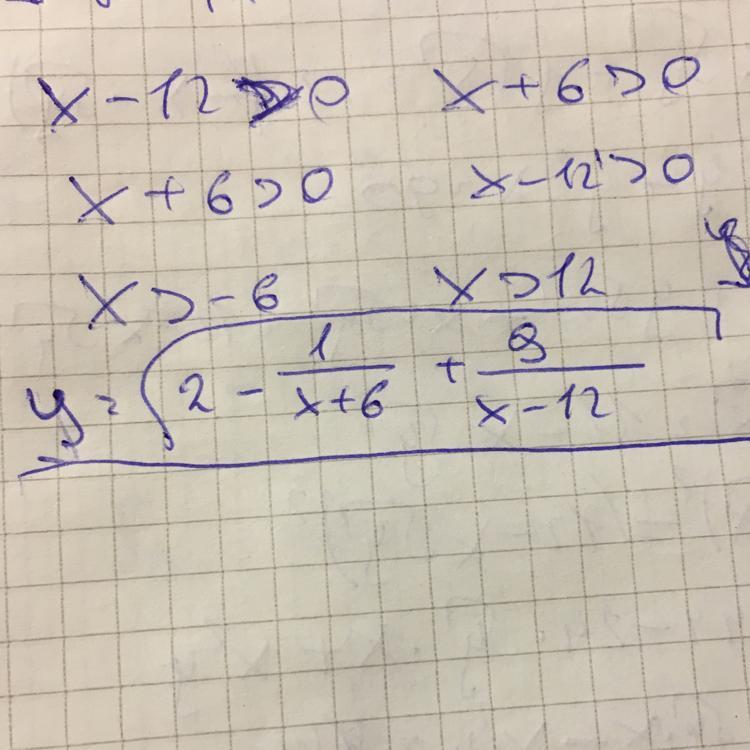 x - 12 > 0   x + 6 > 0
x + 6 > 0   x - 12 > 0
x > -6   x > 12
y = √(2 - 1/(x+6) + 9/(x-12))